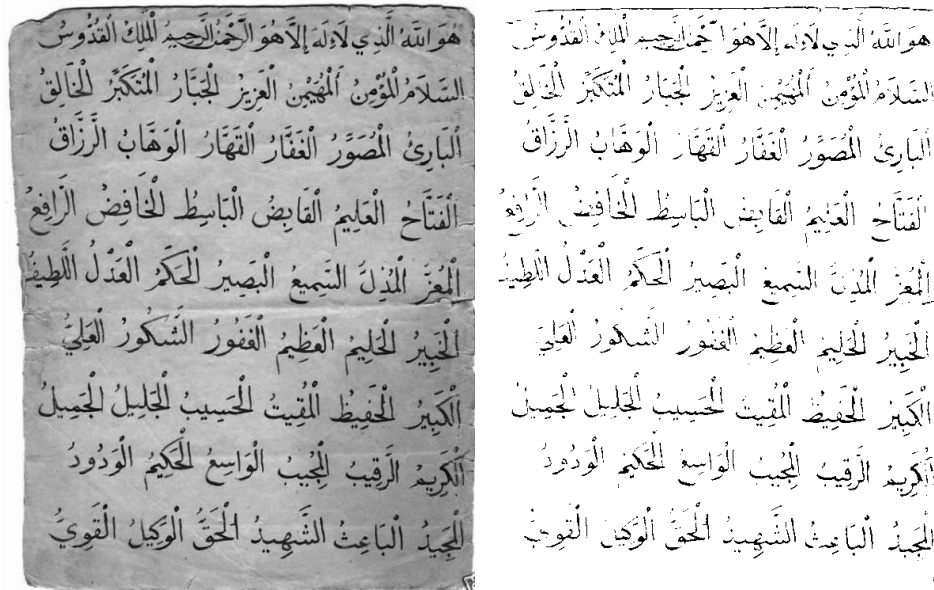 هُوَ اللَّهُ الَّذِي لَا إِلَهَ إِلَّا هُوَ الرَّحْمَنُ الرَّحِيمُ الْمَلِكُ الْقُدُّوسُ
السَّلَامُ الْمُؤْمِنُ الْمُهَيْمِنُ الْعَزِيزُ الْجَبَّارُ الْمُتَكَبِّرُ الْخَالِقُ
الْبَارِئُ الْمُصَوِّرُ الْغَفَّارُ الْقَهَّارُ الْوَهَّابُ الرَّزَّاقُ
الْفَتَّاحُ الْعَلِيمُ الْقَابِضُ الْبَاسِطُ الْخَافِضُ الرَّافِعُ
الْمُعِزُّ الْمُذِلُّ السَّمِيعُ الْبَصِيرُ الْحَكَمُ الْعَدْلُ اللَّطِيفُ
الْخَبِيرُ الْحَلِيمُ الْعَظِيمُ الْغَفُورُ الشَّكُورُ الْعَلِيُّ
الْكَبِيرُ الْحَفِيظُ الْمُقِيتُ الْحَسِيبُ الْجَلِيلُ الْجَمِيلُ
الْكَرِيمُ الرَّقِيبُ الْمُجِيبُ الْوَاسِعُ الْحَكِيمُ الْوَدُودُ
الْمَجِيدُ الْبَاعِثُ الشَّهِيدُ الْحَقُّ الْوَكِيلُ الْقَوِيُّ
هُوَ اللَّهُ الَّذِي لَا إِلَهَ إِلَّا هُوَ الرَّحْمَنُ الرَّحِيمُ الْمَلِكُ الْقُدُّوسُ
السَّلَامُ الْمُؤْمِنُ الْمُهَيْمِنُ الْعَزِيزُ الْجَبَّارُ الْمُتَكَبِّرُ الْخَالِقُ
الْبَارِئُ الْمُصَوِّرُ الْغَفَّارُ الْقَهَّارُ الْوَهَّابُ الرَّزَّاقُ
الْفَتَّاحُ الْعَلِيمُ الْقَابِضُ الْبَاسِطُ الْخَافِضُ الرَّافِعُ
الْمُعِزُّ الْمُذِلُّ السَّمِيعُ الْبَصِيرُ الْحَكَمُ الْعَدْلُ اللَّطِيفُ
الْخَبِيرُ الْحَلِيمُ الْعَظِيمُ الْغَفُورُ الشَّكُورُ الْعَلِيُّ
الْكَبِيرُ الْحَفِيظُ الْمُقِيتُ الْحَسِيبُ الْجَلِيلُ الْجَمِيلُ
الْكَرِيمُ الرَّقِيبُ الْمُجِيبُ الْوَاسِعُ الْحَكِيمُ الْوَدُودُ
الْمَجِيدُ الْبَاعِثُ الشَّهِيدُ الْحَقُّ الْوَكِيلُ الْقَوِيُّ